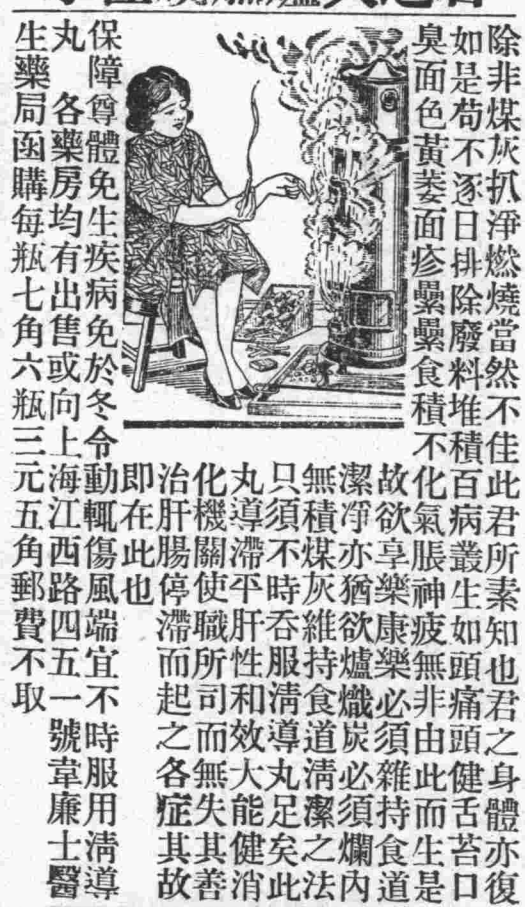 除非煤灰扒淨燃燒當然不佳此君所素知也君之身體亦復
如是苟不逐日排除廢料堆積百病叢生如頭痛頭健舌苔口
臭面色黃萎面疹纍纍食積不化氣脹神疲無非由此而生是
故欲享樂康樂必須雜持食道
潔凈亦猶欲爐熾炭必須爛內
無積煤灰維持食道清潔之法
只須不時吞服清導丸足矣此
丸導滯平肝性和效大能健消
化機關使職所司而無失其善
治肝腸停滯而起之各症其故
即在此也
保障尊體免生疾病免於冬令動輒傷風端宜不時服用清導
丸　各藥房均有出售或向上海江西路四五一號韋廉士醫
生藥局函購每瓶七角六瓶三元五角郵費不取